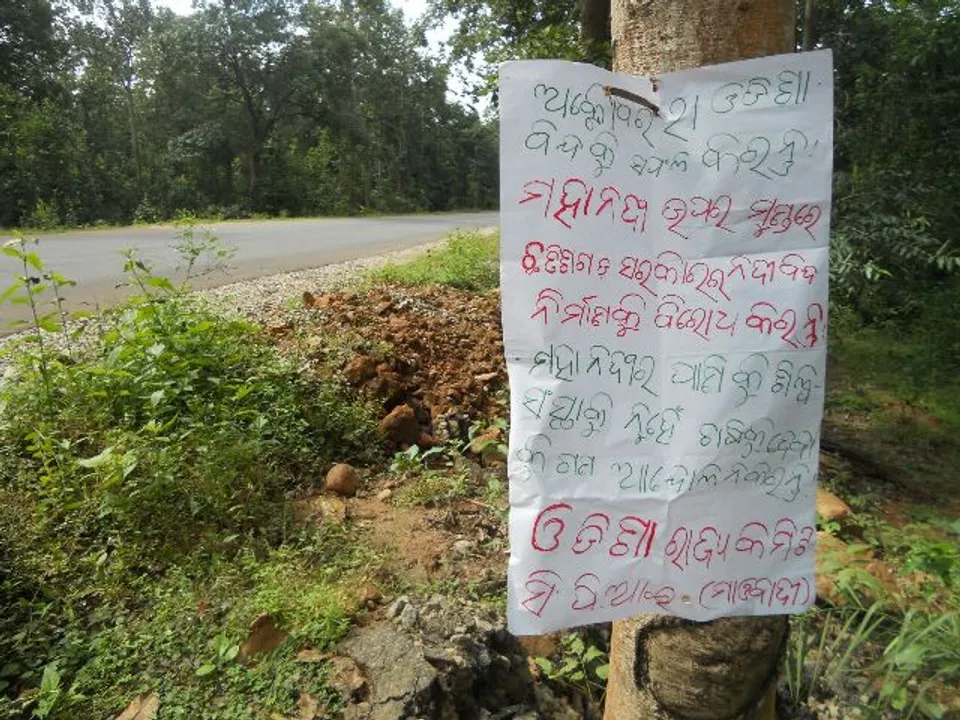 ଅକ୍ଟୋବର ୨୮ ଓଡିଶା
ବନ୍ଦକୁ ସଫଳ କରନ୍ତୁ!
ମହାନଦୀ ଉପର ମୁଣ୍ଡରେ
ଛତିଶଗଡ଼ ସରକାରର ନଦୀବନ୍ଧ
ନିର୍ମାଣକୁ ବିରୋଧ କରନ୍ତୁ
ମହାନଦୀର ପାଣିକୁ ଶିଳ୍ପ
ସଂସ୍ଥାକୁ ନୁହେଁ ଚାଷୀଙ୍କୁ ଦେବା
ଗଣ ଆନ୍ଦୋଳନ କରନ୍ତୁ
ଓଡିଶା ରାଜ୍ୟ କମିଟି
ସି.ପି.ଆଇ. (ମାଓବାଦୀ)